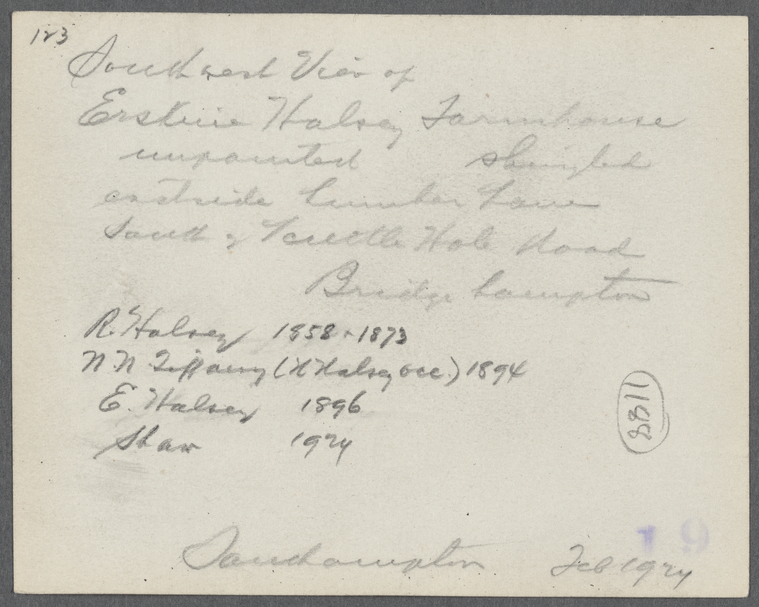 123
Southwest View of
Erskine Halsey Farmhouse
unpainted shingled
eastside Lumber Lane
South of Scuttle Hole Road
Bridgehampton
R. Halsey 1858 + 1873
N. N. Tiffany (H Halsey occ.) 1894
E. Halsey 1896
Shaw 1924
1188
19
Southampton Feb 1924